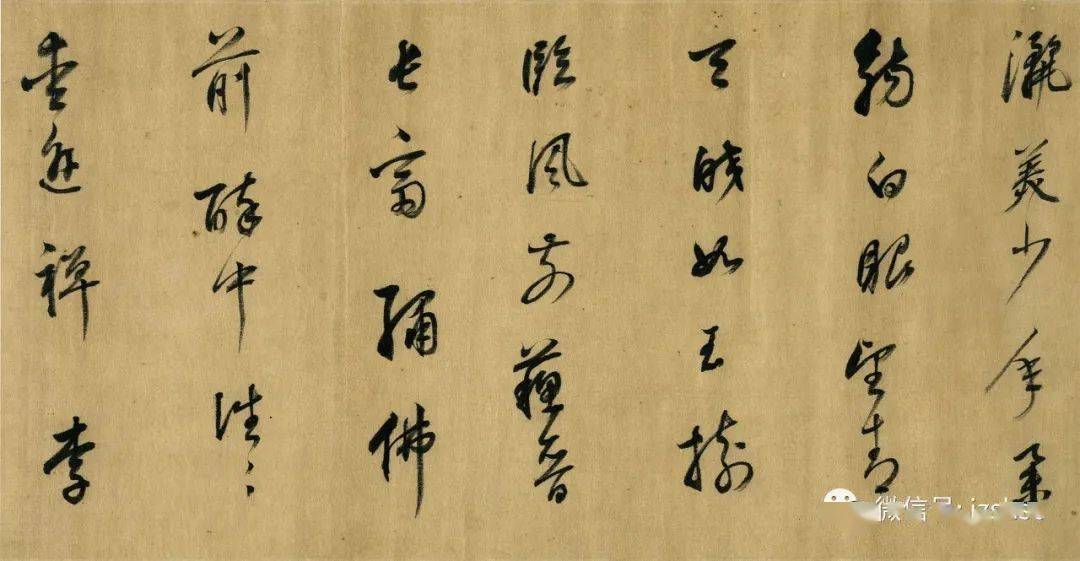 灑美少年舉
觴白眼望青
天皎如玉樹
臨風前蘇晉
長齋繡佛
前醉中往〻
愛逃禪李
微信号: